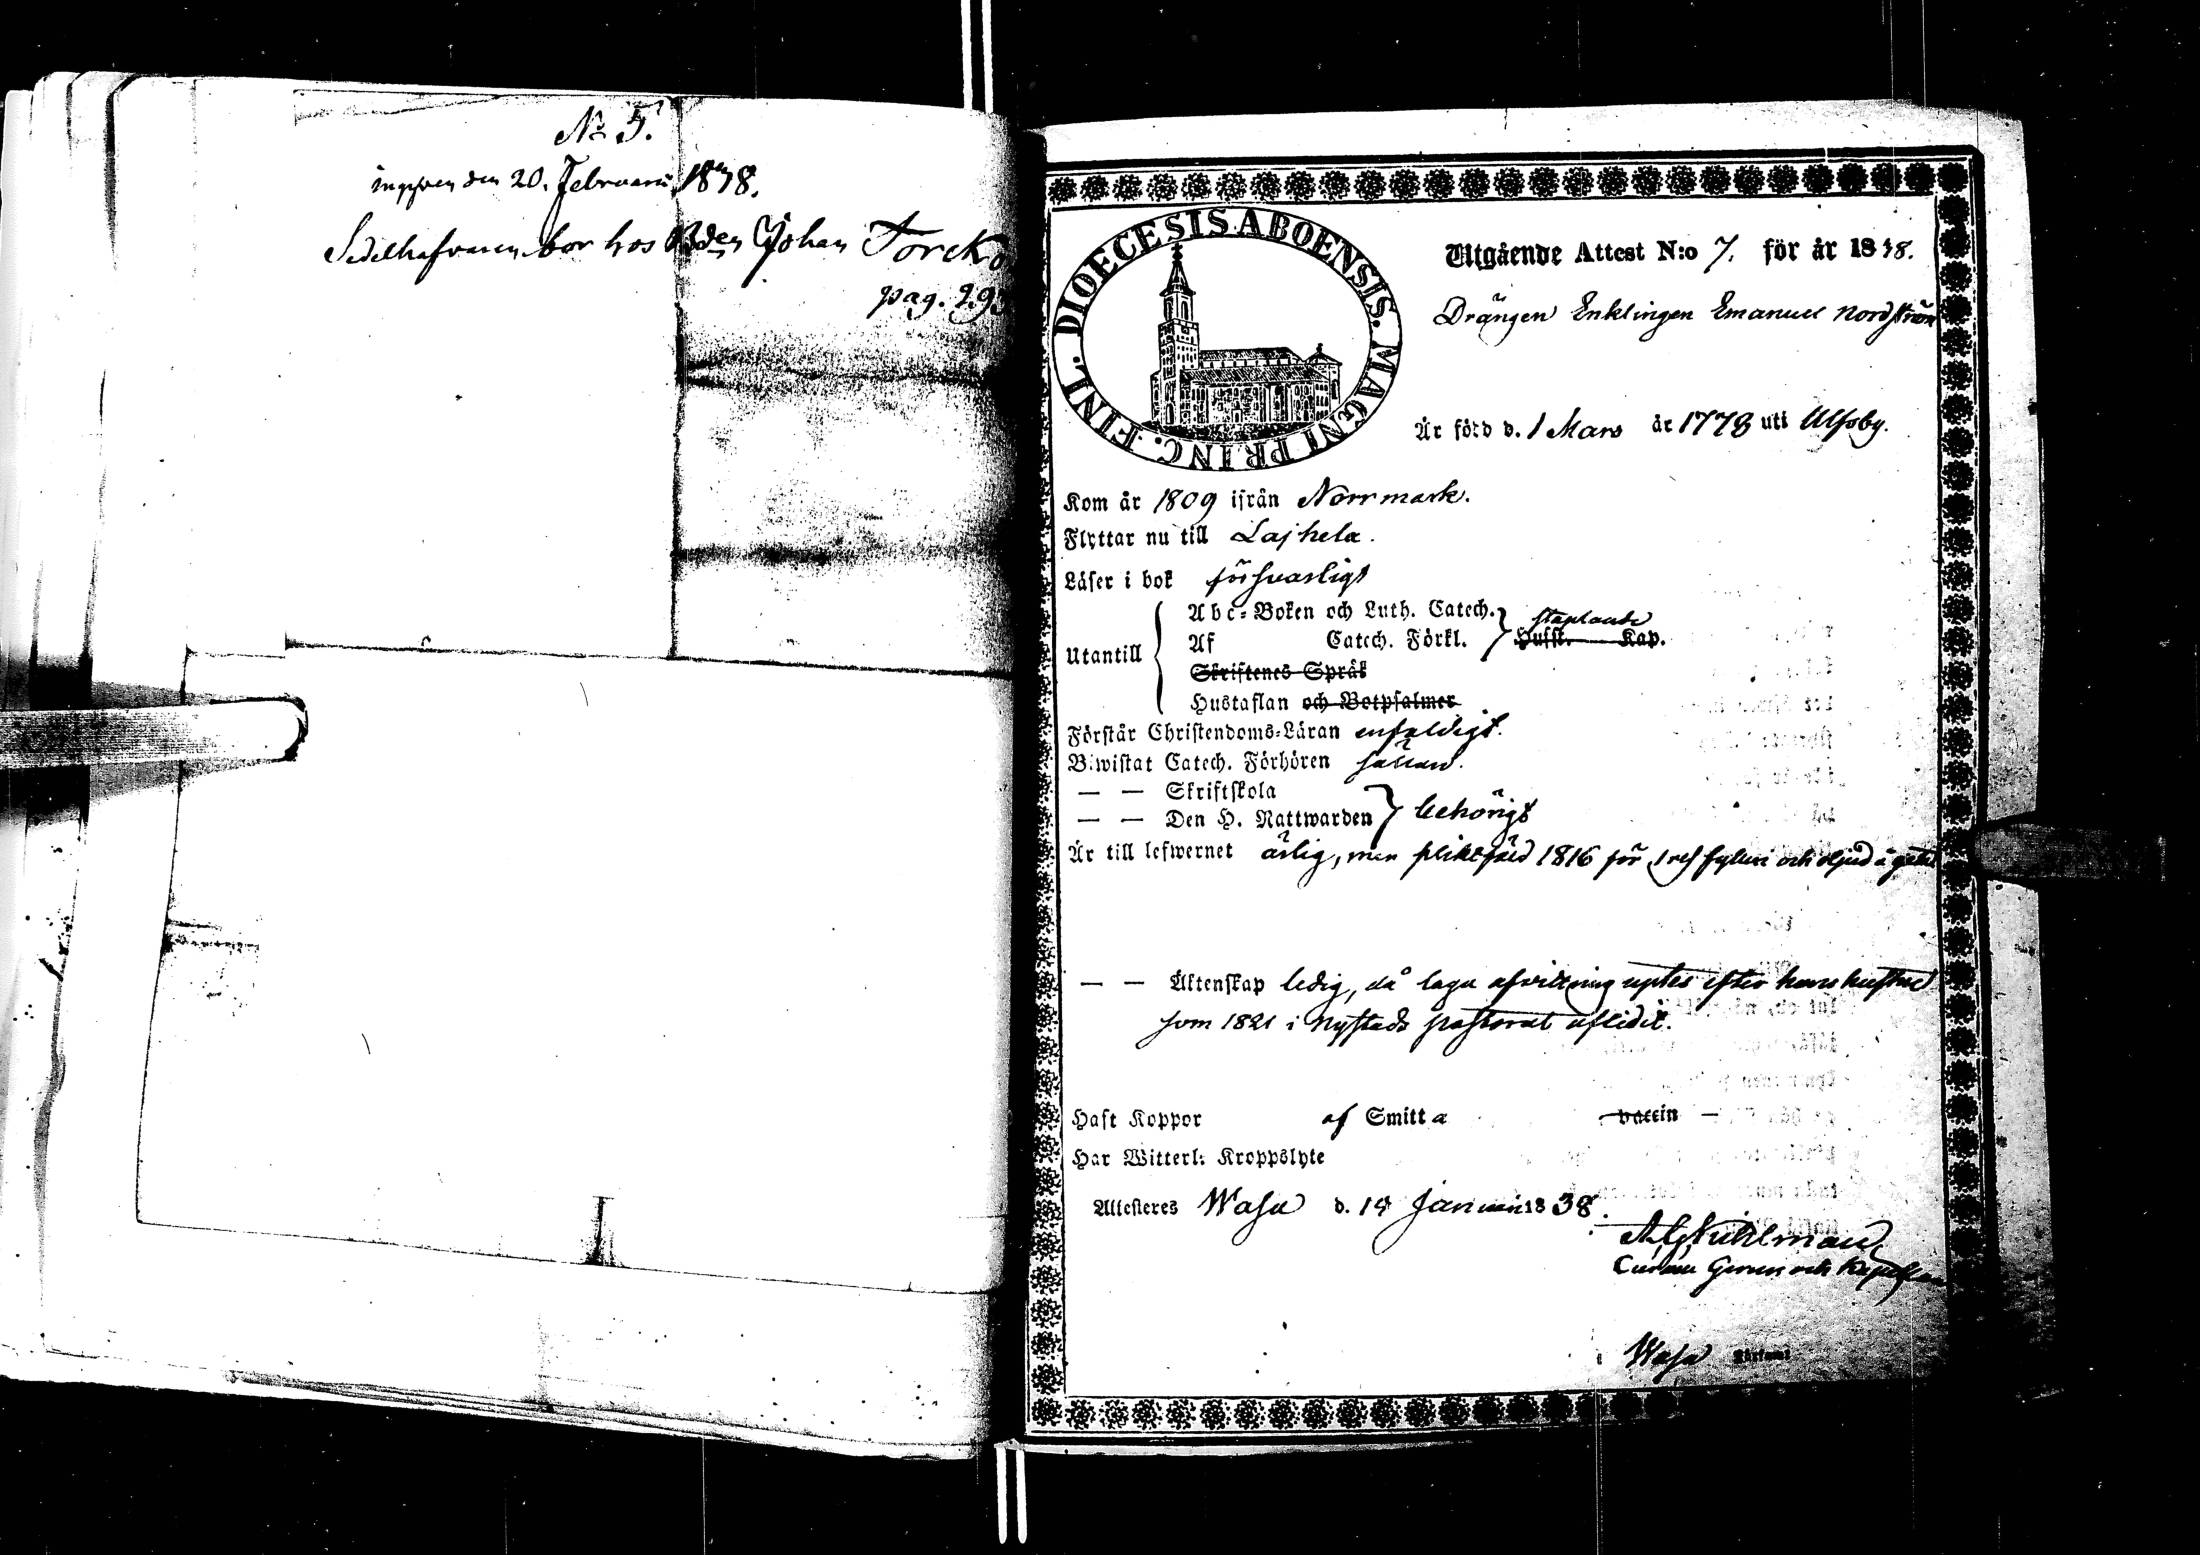 No 5.
den 20. Februarii 1838.
Sedelhafvaren bor hos Bden Johan Torcko
pag. 293
FINL. DIOECESIS ABOENSIS. MAGNI PRINC.
Utgående Attest N:o 7. för år 1838.
Drängen Enklingen Emanuel Nordström
Är född d. 1 Mars år 1778 uti Ulfsby.
Kom år 1809 ifrån Norrmark.
Flyttar nu till Lajhela.
Läser i bok försvarligt
Abc-Boken och Luth. Catech.
staplande
Utantill Af Catech. Förkl. Hufst. Kap.
Skriftenes Språk
Hustaflan och Botpsalmer
Förstår Christendoms-Läran enfaldigt.
Biwistat Catech. Förhören sällan.
— — Skriftskola
— — Den H. Nattwarden behörigt
Är till lefwernet ärlig, men pliktfäld 1816 för fylleri och oljud å
— — Äktenskap ledig, då laga afvittring uptes efter hans hustru
som 1821 i Nystads pastorat aflidit.
Haft Koppor af Smitta vaccin —
Har Witterl: Kroppslyte
Attesteres Wasa d. Januarii 1838.
Wasa